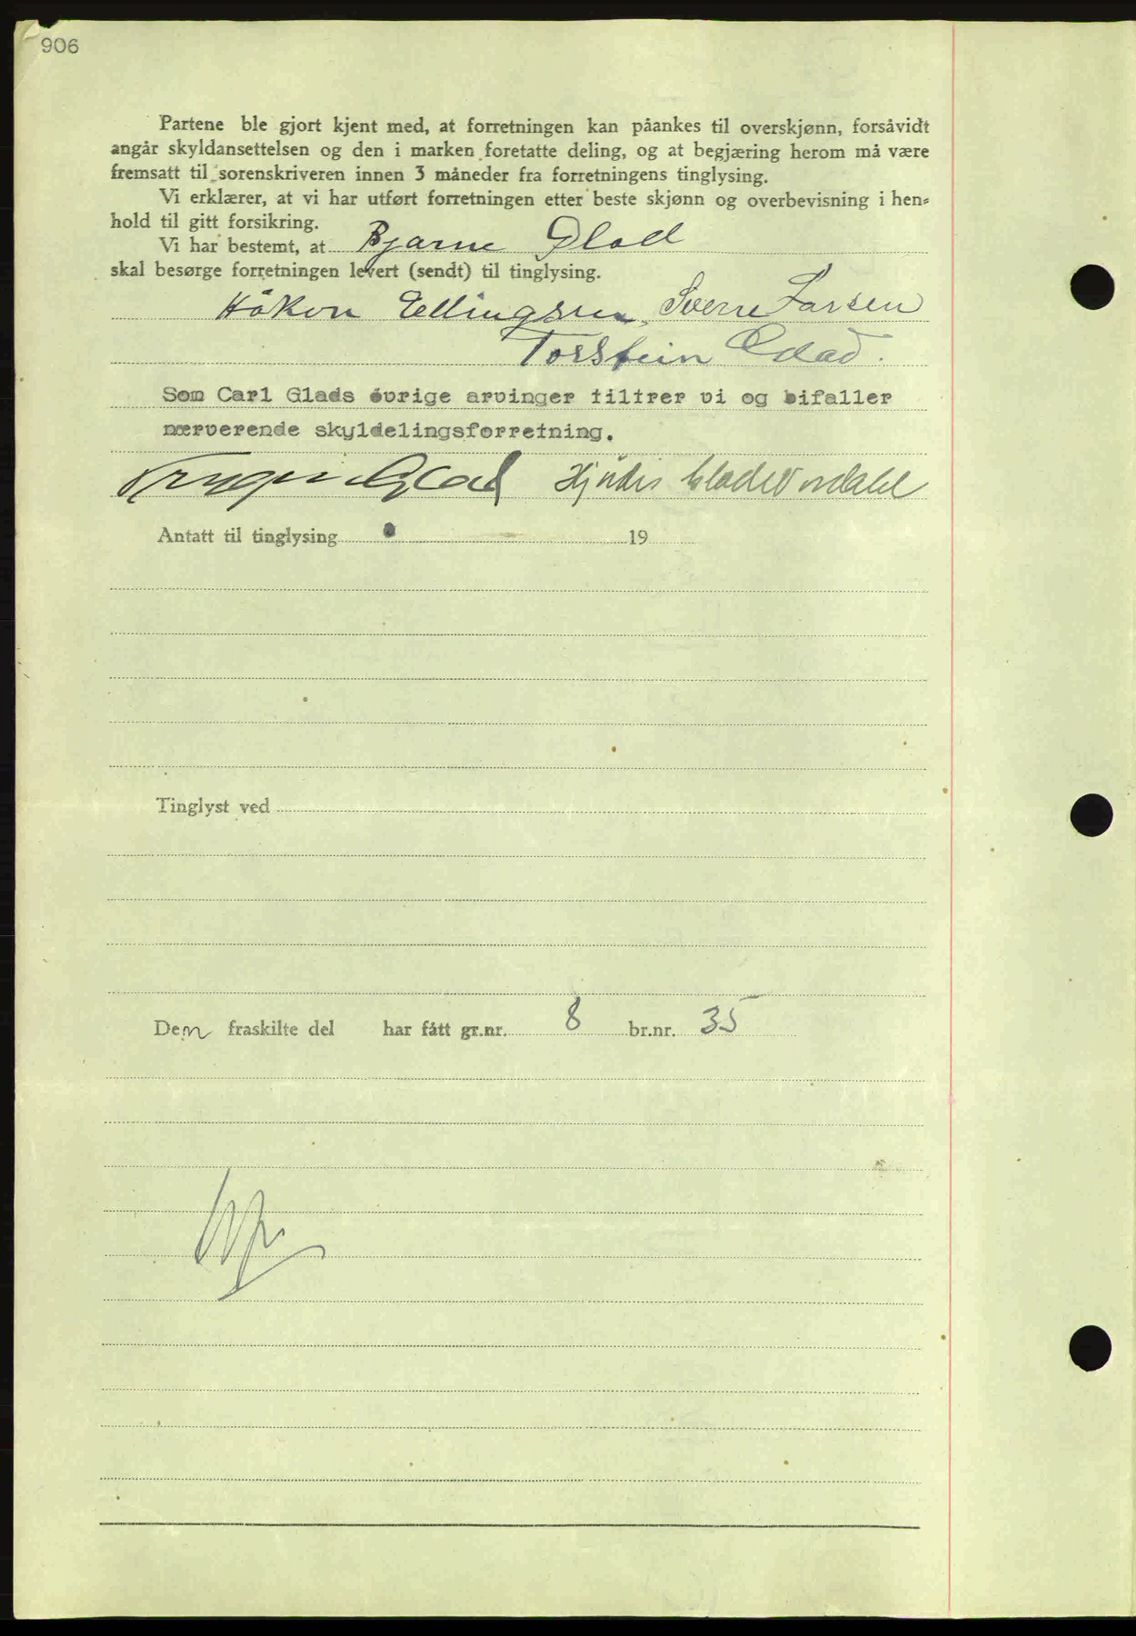 906
Partene ble gjort kjent med, at forretningen kan påankes til overskjønn, forsåvidt
angår skyldansettelsen og den i marken foretatte deling, og at begjæring herom må være
fremsatt til sorenskriveren innen 3 måneder fra forretningens tinglysing.
Vi erklærer, at vi har utført forretningen etter beste skjønn og overbevisning i hen-
hold til gitt forsikring.
Vi har bestemt, at Bjarne Glad
skal besørge forretningen levert (sendt) til tinglysing.
Håkon Ellingsen, Sverre Larsen
Torstein Glad.
Som Carl Glads øvrige arvinger tiltrer vi og bifaller
nærverende skyldelingsforretning.
Trygve Glad Hjørdis Glad
Antatt til tinglysing 19
Tinglyst ved
Den fraskilte del har fått gr.nr. 8 br.nr. 35